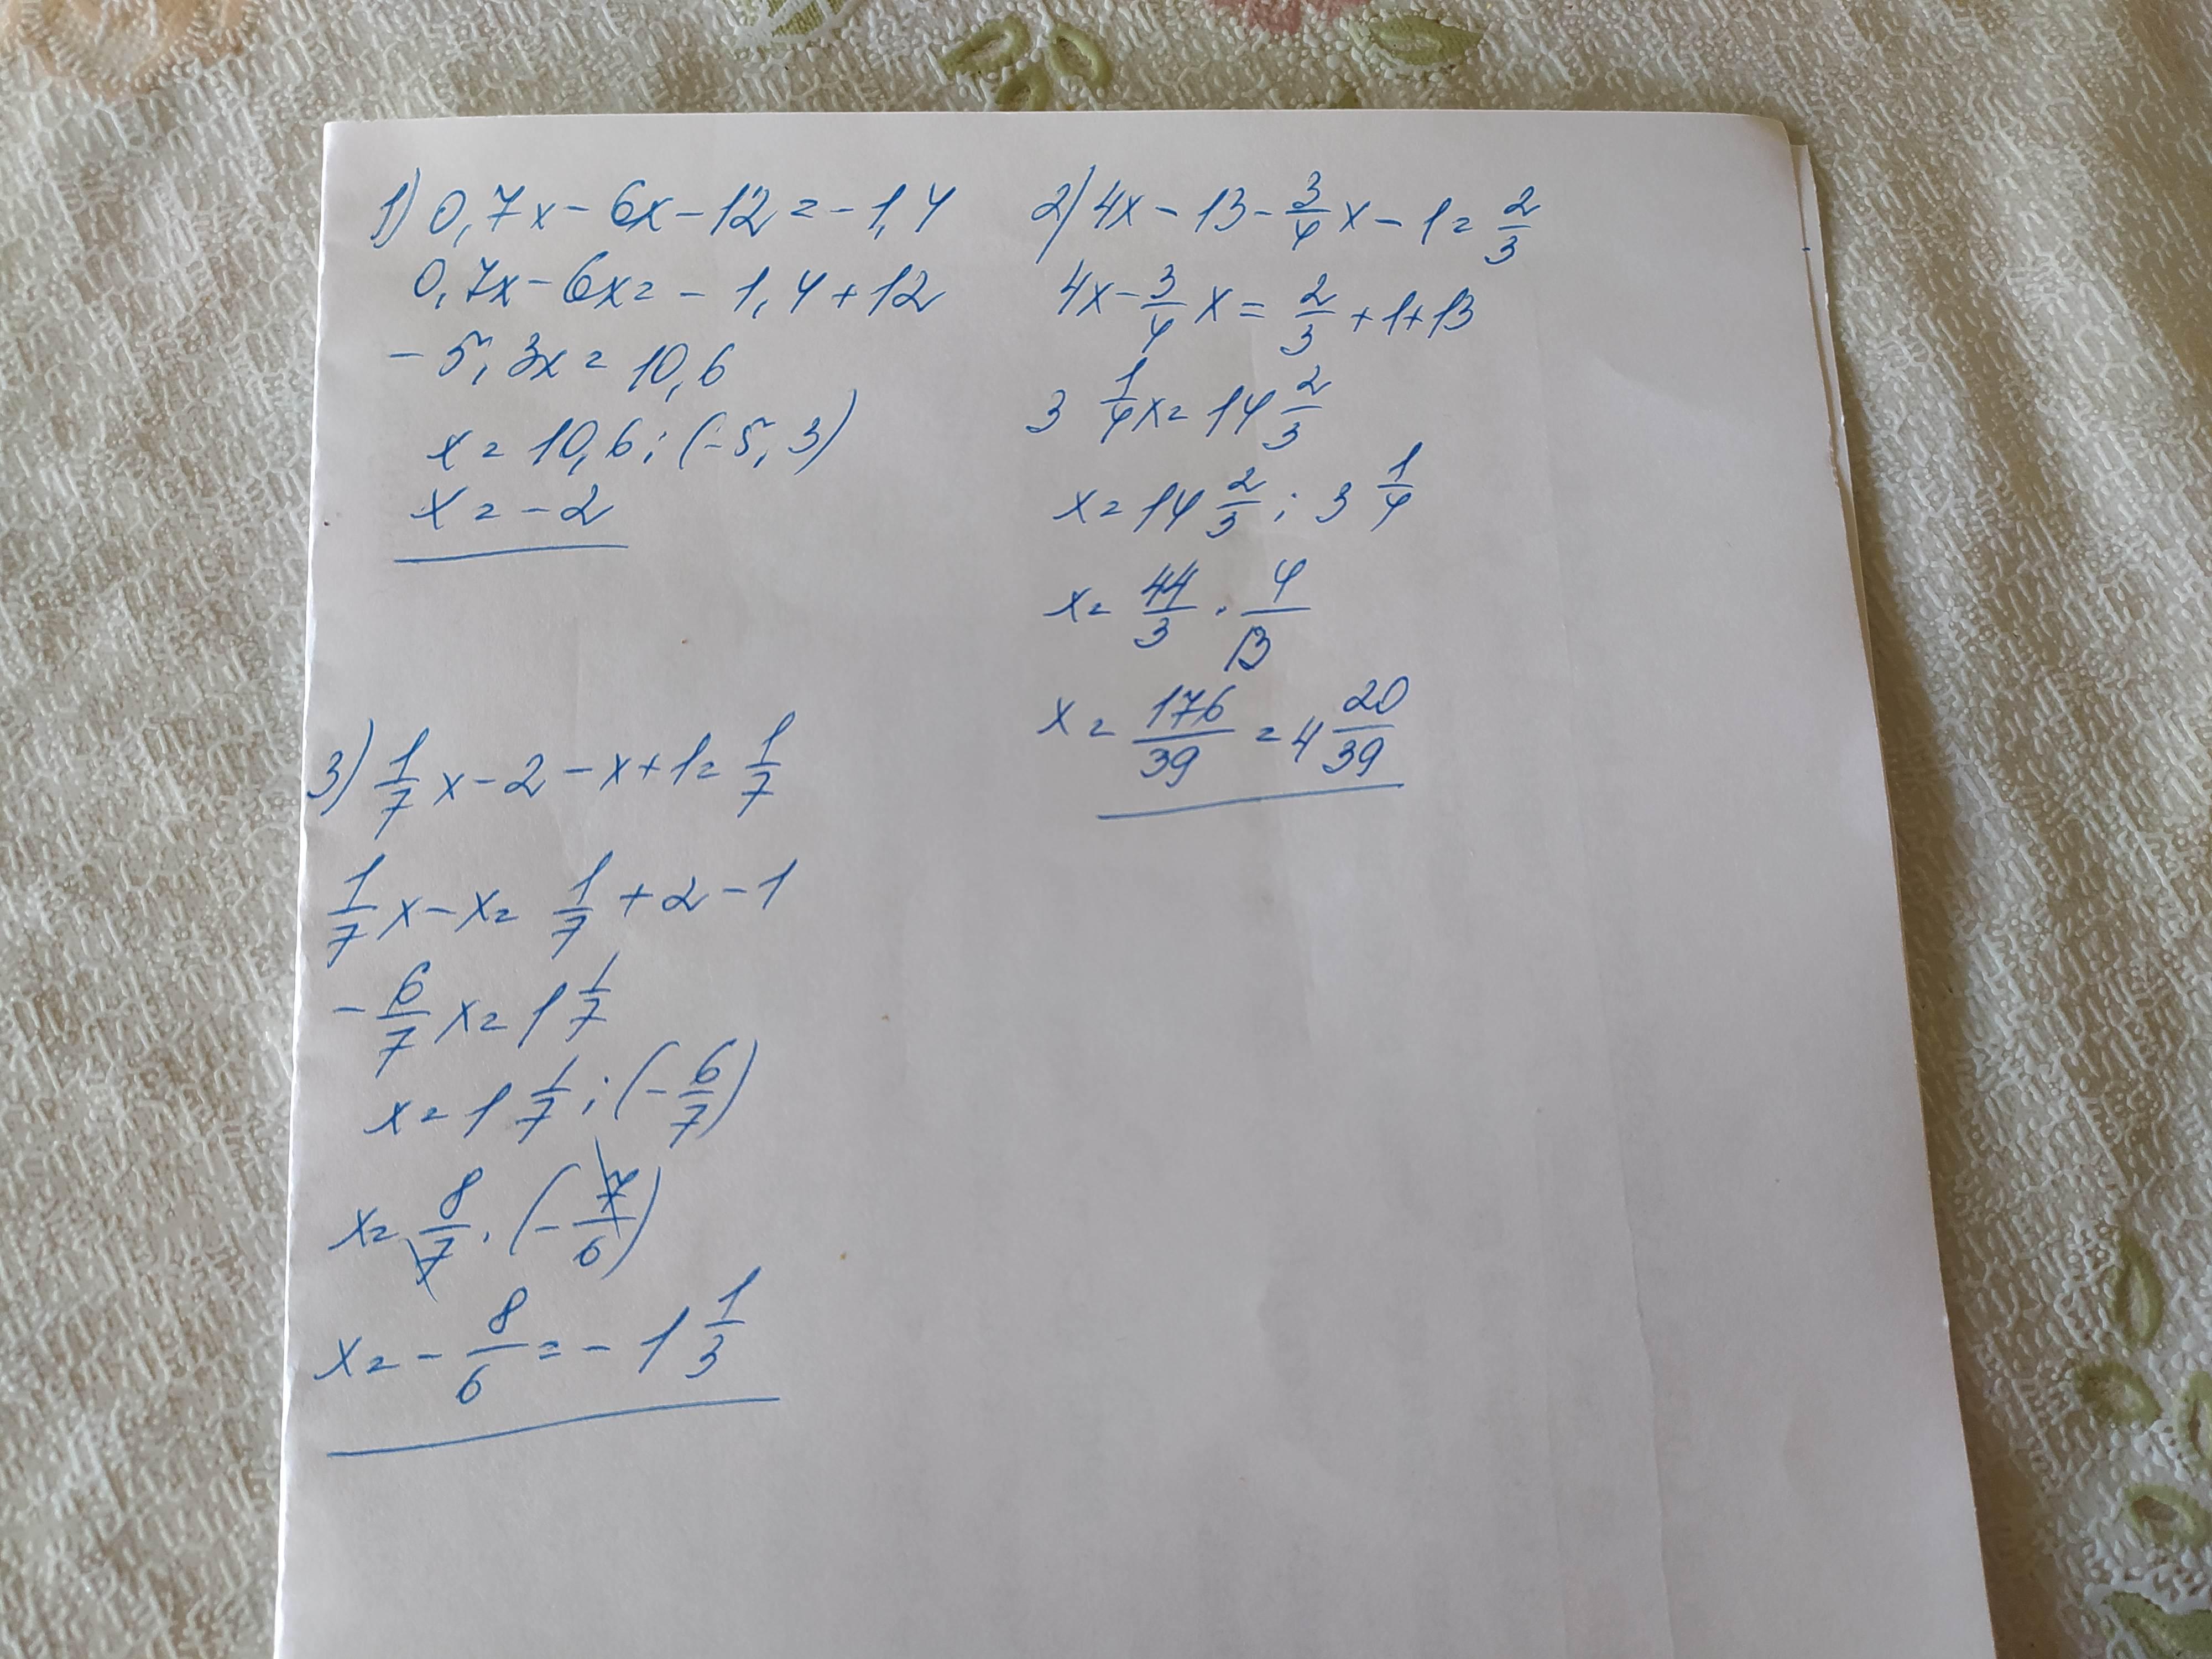 1) 0,7x - 6x - 12 = - 1,4
0,7x - 6x = - 1,4 + 12
- 5,3x = 10,6
x = 10,6 : (-5,3)
x = - 2
2) 4x - 13 - 3/4 x - 1 = 2/3
4x - 3/4 x = 2/3 + 1 + 13
3 1/4 x = 14 2/3
x = 14 2/3 : 3 1/4
x = 44/3 · 4/13
x = 176/39 = 4 20/39
3) 1/7 x - 2 - x + 1 = 1/7
1/7 x - x = 1/7 + 2 - 1
- 6/7 x = 1 1/7
x = 1 1/7 : (- 6/7)
x = 8/7 · (- 7/6)
x = - 8/6 = - 1 1/3